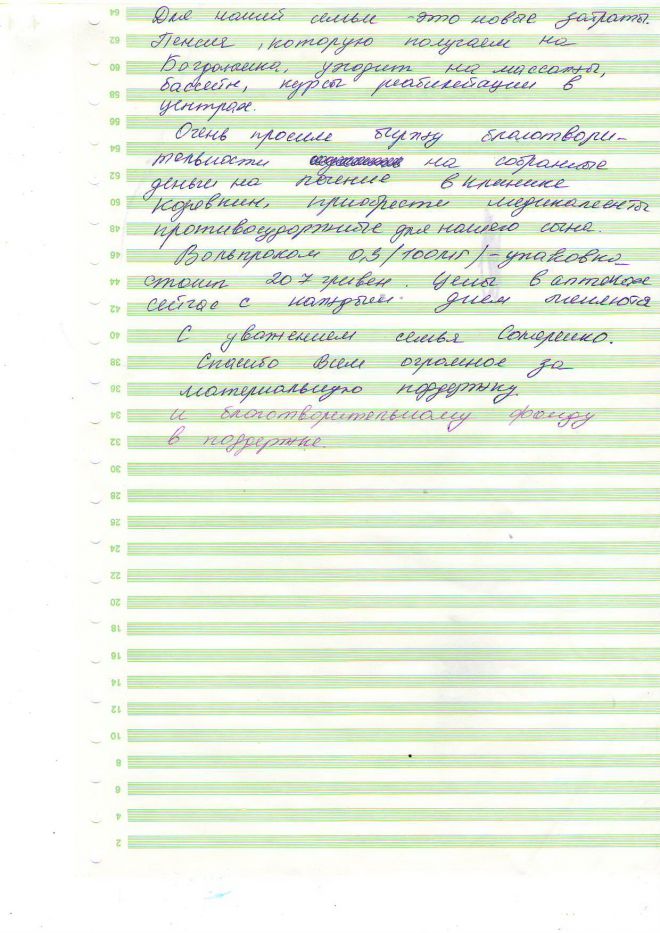 Для нашей семьи - это новые затраты.
Пенсия, которую получаем на
Богданчика, уходит на массажи,
бассейн, курсы реабилитации в
центрах.
Очень просим биржу благотвори-
тельности на собранные
деньги на лечение в клинике
Козявкин, приобрести медикаменты
противосудорожные для нашего сына.
Вольпроком 0,3 /100мг/ - упаковка
стоит 207 гривен. Цены в аптеках
сейчас с каждым днем меняются
С уважением семья
Спасибо Всем огромное за
материальную поддержку.
и благотворительному фонду
в поддержке.
64
62
60
58
56
54
52
50
48
46
44
42
40
38
36
34
32
30
28
26
24
22
20
18
16
14
12
10
8
6
4
2